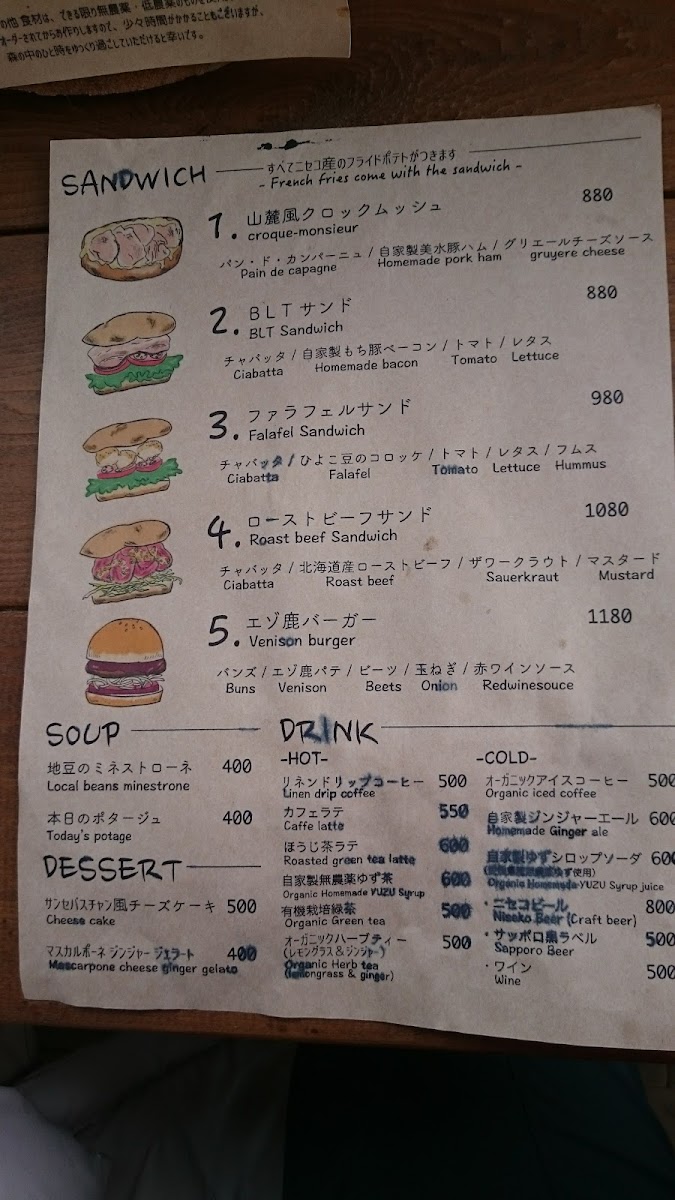 の他 食材は、できる限り無農薬・低農薬のものを
オーダーされてからお作りしますので、少々時間がかかることもございますが、
森の中のひと時をゆっくり過ごしていただけると幸いです。
SANDWICH
すべてニセコ産のフライドポテトがつきます
- French fries come with the sandwich -
1. 山麓風クロックムッシュ 880
croque-monsieur
パン・ド・カンパーニュ / 自家製美水豚ハム / グリエールチーズソース
Pain de capagne Homemade pork ham gruyere cheese
2. BLTサンド 880
BLT Sandwich
チャバッタ / 自家製もち豚ベーコン / トマト / レタス
Ciabatta Homemade bacon Tomato Lettuce
3. ファラフェルサンド 980
Falafel Sandwich
チャバッタ / ひよこ豆のコロッケ / トマト / レタス / フムス
Ciabatta Falafel Tomato Lettuce Hummus
4. ローストビーフサンド 1080
Roast beef Sandwich
チャバッタ / 北海道産ローストビーフ / ザワークラウト / マスタード
Ciabatta Roast beef Sauerkraut Mustard
5. エゾ鹿バーガー 1180
Venison burger
バンズ / エゾ鹿パテ / ビーツ / 玉ねぎ / 赤ワインソース
Buns Venison Beets Onion Redwinesouce
SOUP
地豆のミネストローネ 400
Local beans minestrone
本日のポタージュ 400
Today's potage
DESSERT
サンセバスチャン風チーズケーキ 500
Cheese cake
マスカルポーネ ジンジャー ジェラート 400
Mascarpone cheese ginger gelato
DRINK
-HOT-
リネンドリップコーヒー 500
Linen drip coffee
カフェラテ 550
Caffe latte
ほうじ茶ラテ 600
Roasted green tea latte
自家製無農薬ゆず茶 600
Organic Homemade YUZU Syrup
有機栽培緑茶 500
Organic Green tea
オーガニックハーブティー 500
(レモングラス&ジンジャー)
Organic Herb tea
(lemongrass & ginger)
-COLD-
オーガニックアイスコーヒー 500
Organic iced coffee
自家製ジンジャーエール 600
Homemade Ginger ale
自家製ゆずシロップソーダ 600
Organic Homemade YUZU Syrup juice
・ニセコビール 800
Niseko Beer (Craft beer)
・サッポロ黒ラベル 500
Sapporo Beer
・ワイン 500
Wine